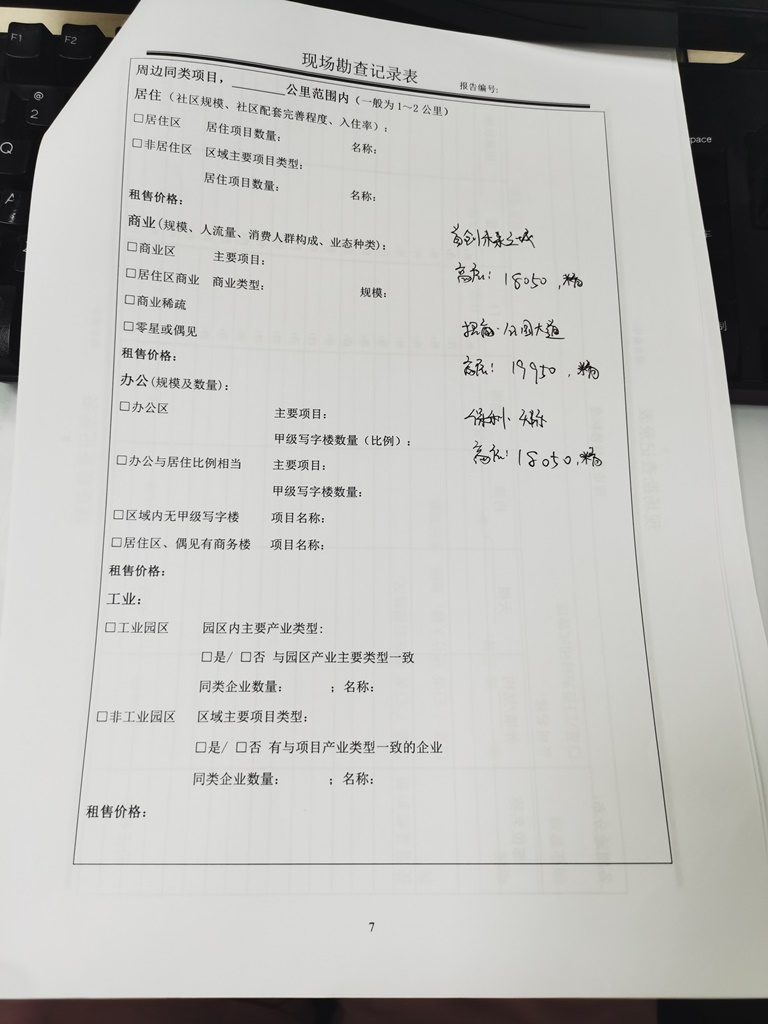 现场勘查记录表
报告编号:
周边同类项目，______公里范围内（一般为1～2公里）
居住（社区规模、社区配套完善程度、入住率）：
□居住区 居住项目数量： 名称：
□非居住区 区域主要项目类型：
居住项目数量： 名称：
租售价格：
商业(规模、人流量、消费人群构成、业态种类)：
首创禧瑞之城
□商业区 主要项目：
高层：18050，精
□居住区商业 商业类型： 规模：
□商业稀疏
招商·公园大道
□零星或偶见
租售价格：
高层：19950，精
办公(规模及数量)：
□办公区 主要项目：
保利·天际
甲级写字楼数量（比例）：
高层：18050，精
□办公与居住比例相当 主要项目：
甲级写字楼数量：
□区域内无甲级写字楼 项目名称：
□居住区、偶见有商务楼 项目名称：
租售价格：
工业：
□工业园区 园区内主要产业类型：
□是/ □否 与园区产业主要类型一致
同类企业数量： ；名称：
□非工业园区 区域主要项目类型：
□是/ □否 有与项目产业类型一致的企业
同类企业数量： ；名称：
租售价格：
7
F1
F2
@
2
Q
A
pace